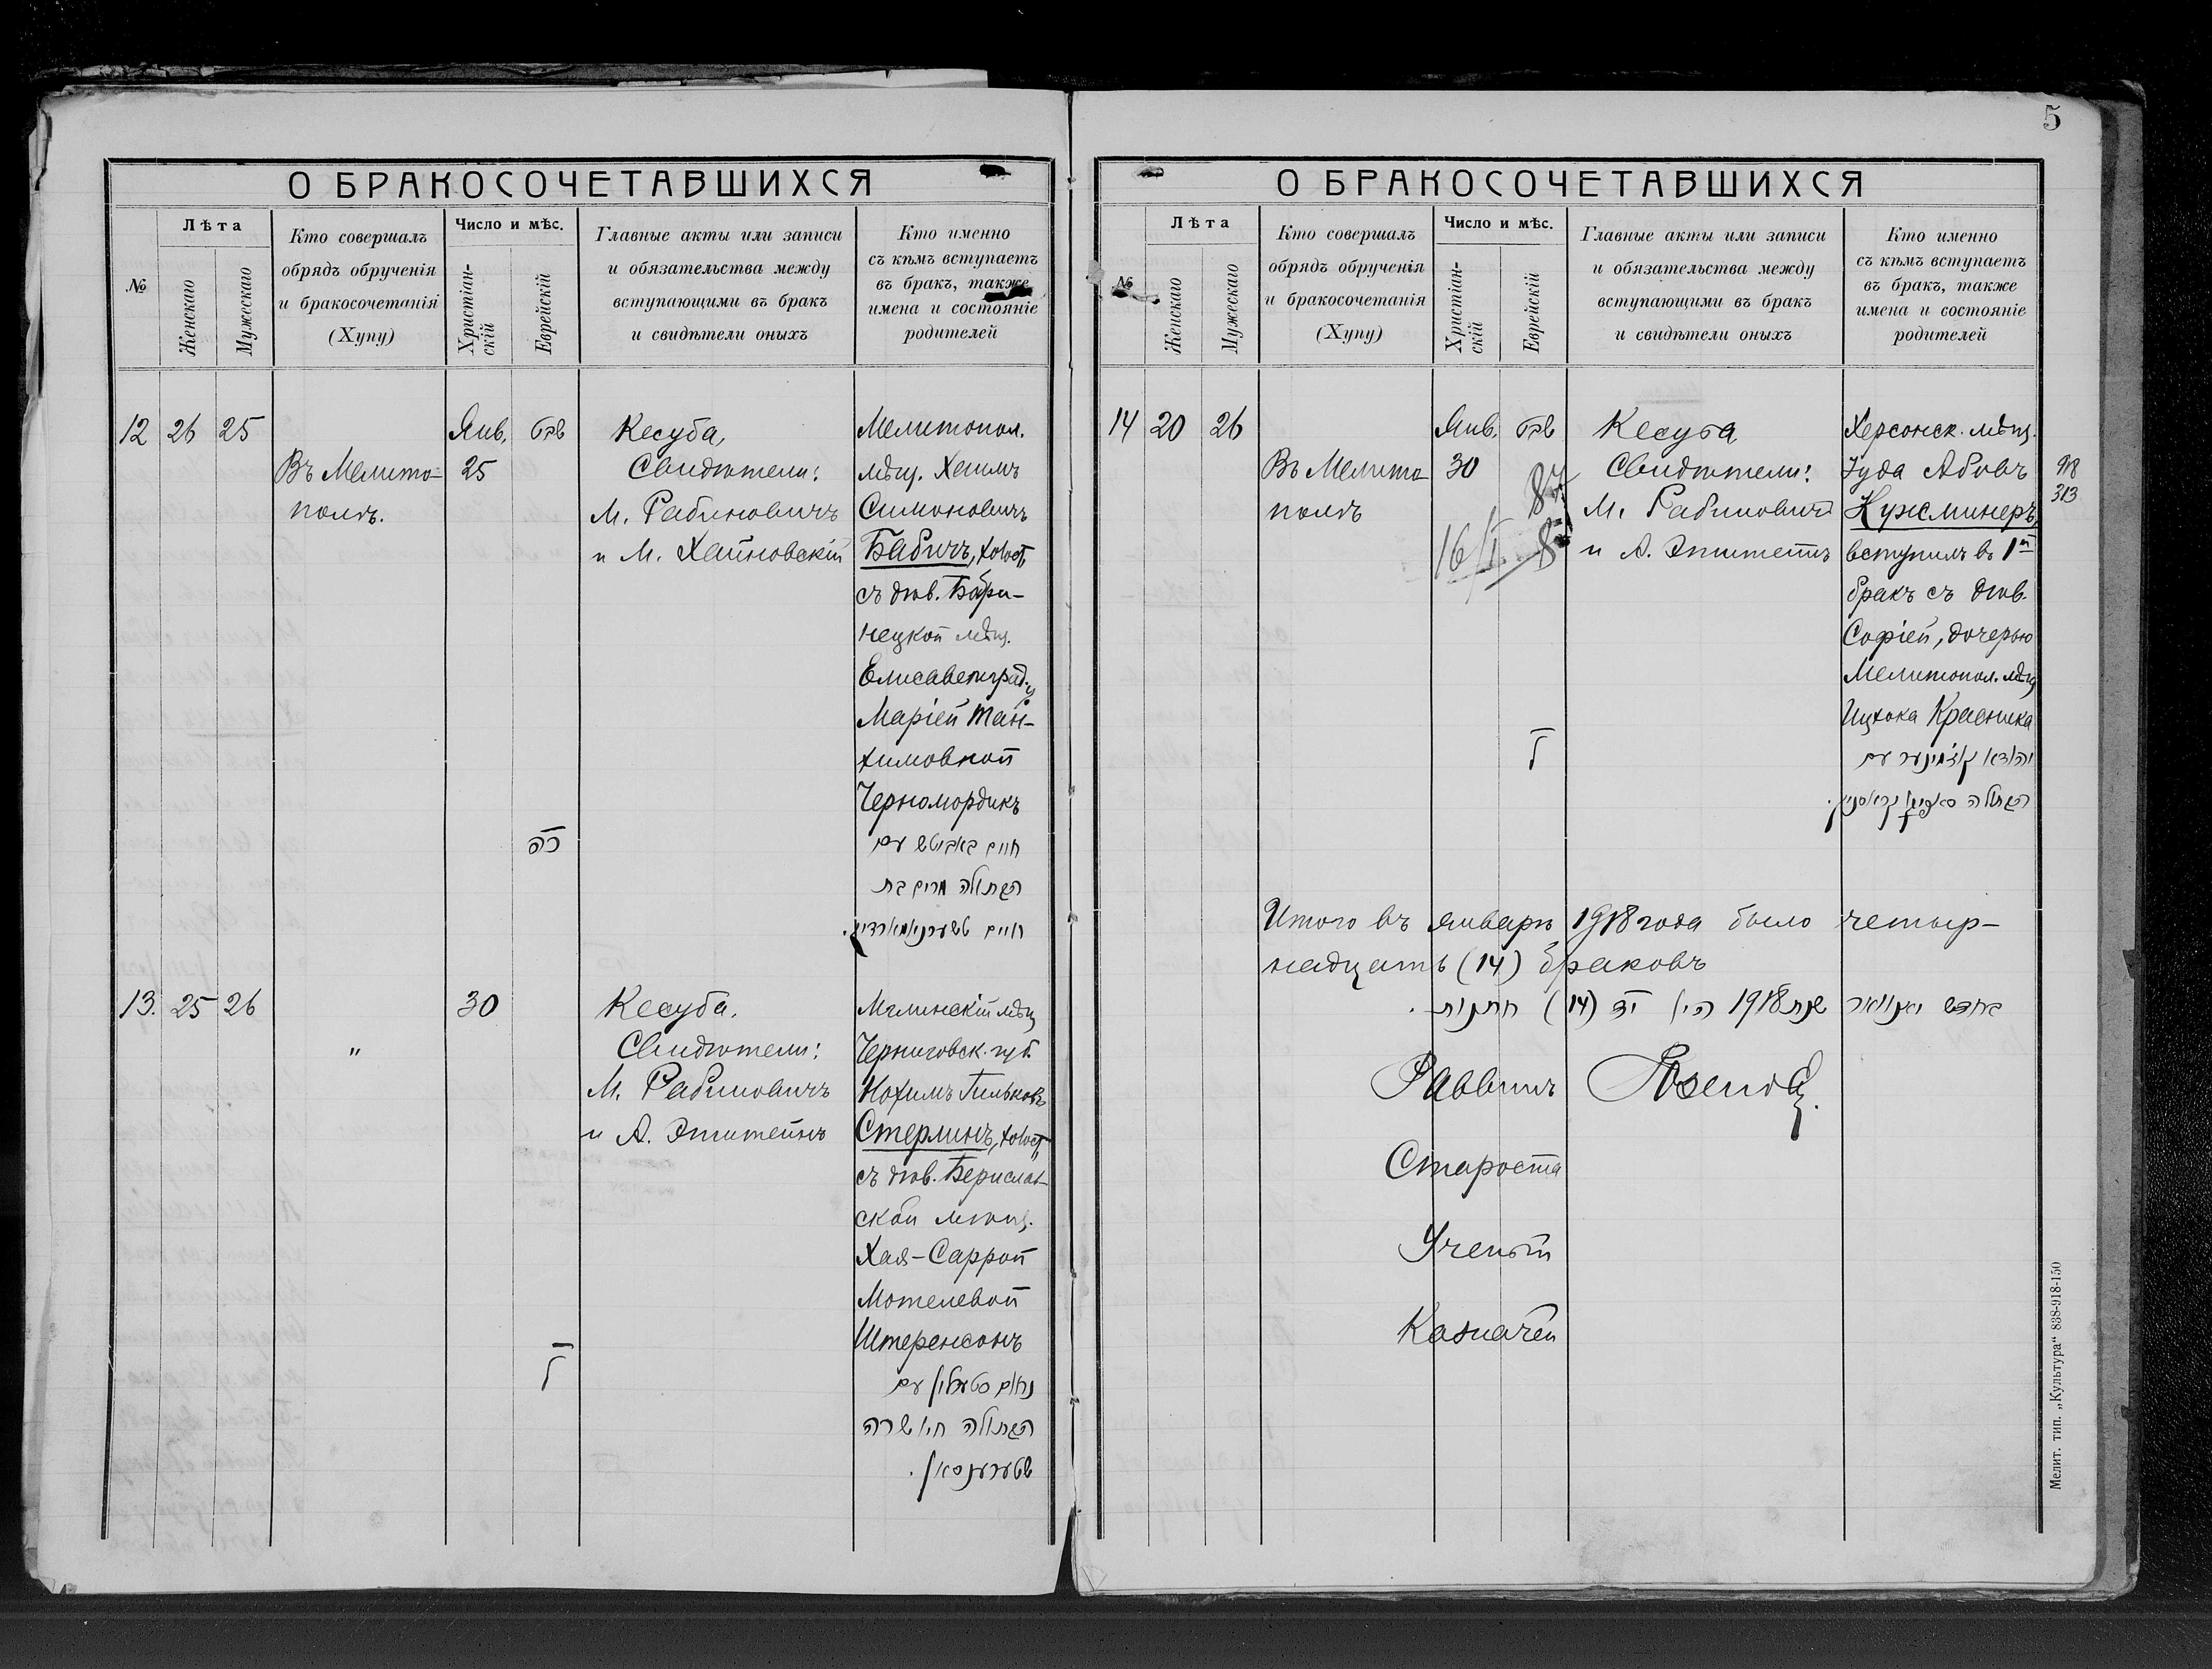 5
О БРАКОСОЧЕТАВШИХСЯ
№
Лѣта
Женскаго
Мужескаго
Кто совершалъ
обрядъ обрученія
и бракосочетанія
(Хупу)
Число и мѣс.
Христіан-
скій
Еврейскій
Главные акты или записи
и обязательства между
вступающими въ бракъ
и свидѣтели оныхъ
Кто именно
съ кѣмъ вступаетъ
въ бракъ, также
имена и состояніе
родителей
12 26 25
Въ Мелито-
полѣ.
Янв. שבט
25
כה
Кесуба,
Свидѣтели:
М. Рабиновичъ
и М. Хайновскій
Мелитопол.
мѣщ. Хаимъ
Симоновичъ
Бабичъ, холост,
съ дѣв. Бобри-
нецкой мѣщ.
Елисаветград. у.
Маріей Тан-
химовной
Черномордикъ
חיים באביטש עם
הבתולה מרים בת
חיים טשערנאמארדיק.
13. 25 26
"
30
ר
Кесуба.
Свидѣтели:
М. Рабиновичъ
и А. Эпштейнъ
Мглинскій мѣщ
Черниговск. губ.
Нохимъ Гильковъ
Стерлинъ, холост,
съ дѣв. Берислав-
ской мѣщ.
Хая-Саррой
Мотелевой
Штеренсонъ
נחום סטערלין עם
הבתולה חיה שרה
שטערענסאן.
О БРАКОСОЧЕТАВШИХСЯ
№
Лѣта
Женскаго
Мужескаго
Кто совершалъ
обрядъ обрученія
и бракосочетанія
(Хупу)
Число и мѣс.
Христіан-
скій
Еврейскій
Главные акты или записи
и обязательства между
вступающими въ бракъ
и свидѣтели оныхъ
Кто именно
съ кѣмъ вступаетъ
въ бракъ, также
имена и состояніе
родителей
14 20 26
Въ Мелито-
полѣ
Янв. שבט
30
16/I
ר
Кесуба
Свидѣтели:
М. Рабиновичъ
и А. Эпштейнъ
Херсонск. мѣщ.
Іуда Абовъ
Нужминеръ,
вступилъ въ 1й
бракъ съ дѣв.
Софіей, дочерью
Мелитопол. мѣщ
Ицхока Красника
918
313
Итого въ январѣ 1918 года было четыр-
надцать (14) браковъ
בחדש יאנואר שנת 1918 היו יד (14) חתנות.
Раввинъ
Староста
Ученый
Казначей
Мелит. тип. „Культура“ 838-918-150